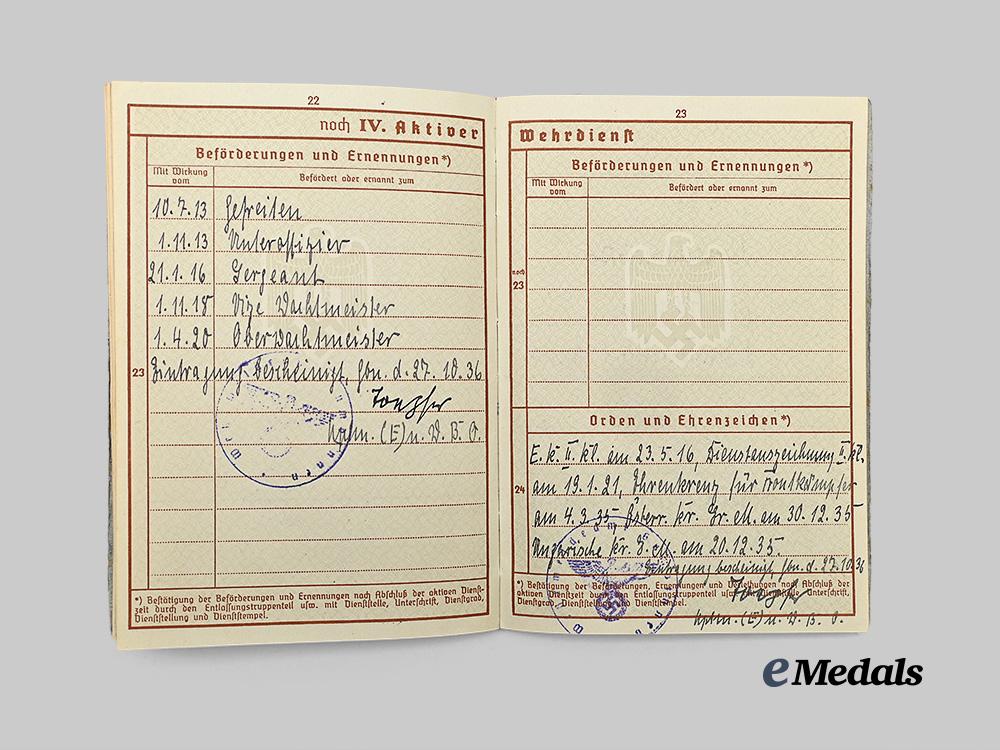 22
noch IV. Aktiver
Beförderungen und Ernennungen*)
Mit Wirkung vom
Befördert oder ernannt zum
10.7.13 Gefreiten
1.11.13 Unteroffizier
21.1.16 Sergeant
1.11.18 Vize Wachtmeister
1.4.20 Oberwachtmeister
23 Eintragung bescheinigt gbn. d. 27.10.36
Hptm. (E) u. W.B.O.
*) Bestätigung der Beförderungen und Ernennungen nach Abschluß der aktiven Dienst-
zeit durch den Entlassungstruppenteil usw. mit Dienststelle, Unterschrift, Dienstgrad,
Dienststellung und Dienststempel.
23
Wehrdienst
Beförderungen und Ernennungen*)
Mit Wirkung vom
Befördert oder ernannt zum
noch
23
Orden und Ehrenzeichen*)
E.K. II. Kl. am 23.5.16, Dienstauszeichnung II. Kl.
24 am 19.1.21, Ehrenkreuz für Frontkämpfer
am 4.3.35, Österr. Kr. Er. M. am 30.12.35
Ungarische Kr. E. M. am 20.12.35
Eintragung bescheinigt gbn. d. 27.10.36
*) Bestätigung der Beförderungen, Ernennungen und Verleihungen nach Abschluß der
aktiven Dienstzeit durch den Entlassungstruppenteil usw. mit Dienststelle, Unterschrift,
Dienstgrad, Dienststellung und Dienststempel.
Hptm. (E) u. W.B.O.
eMedals